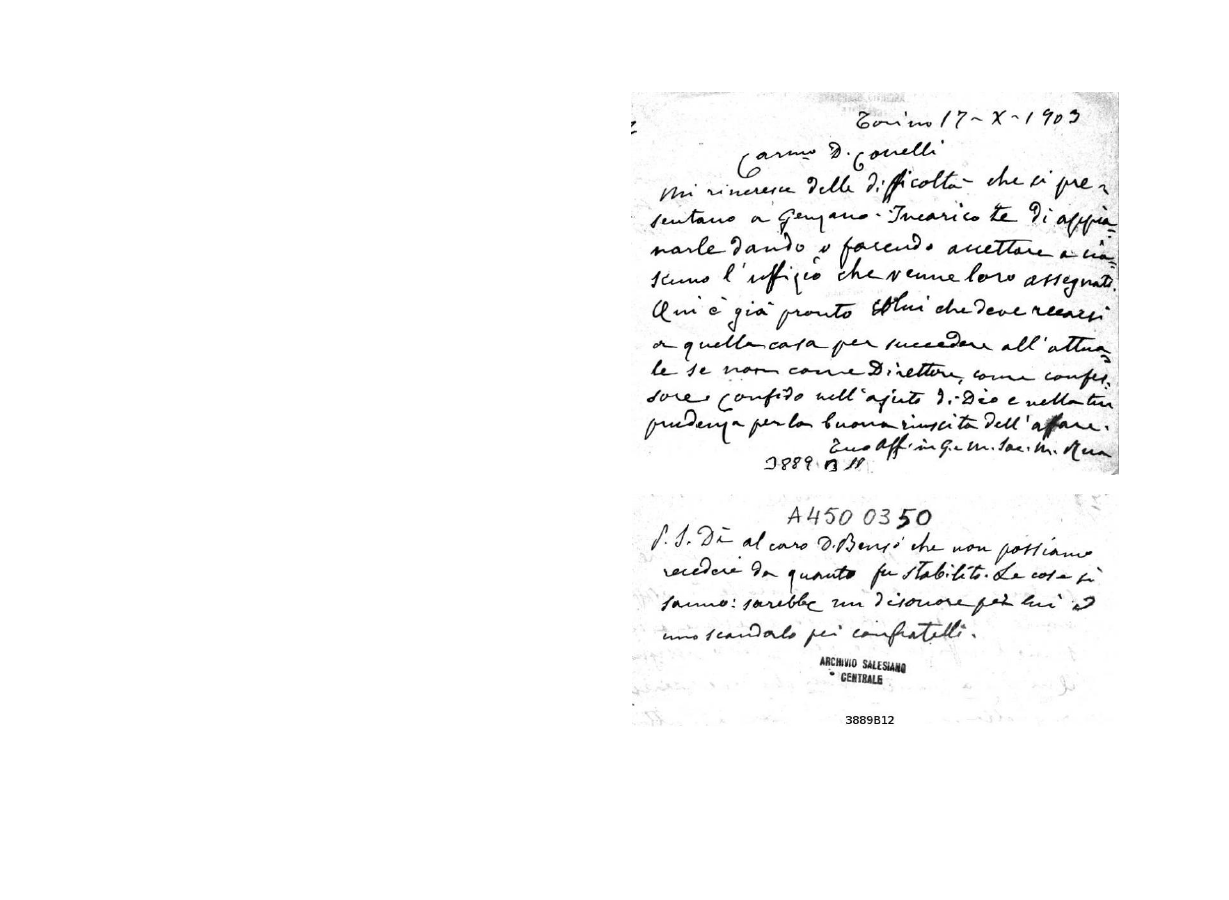 Torino 17-X-1903
Carmo D. Conelli
Mi rincresce delle difficoltà che si pre-
sentano a Genzano. Incarico te di appia=
narle dando o facendo accettare a cia=
scuno l'uffizio che venne loro assegnato.
Qui è già pronto colui che deve recarsi
a quella casa per succedere all'attua=
le se non come Direttore, come confes=
sore. Confido nell'ajuto di Dio e nella tua
prudenza per la buona riuscita dell'affare.
Tuo Aff. in G. e M. Sac. M. Rua
3889 B 11
A450 0350
P.S. Dì al caro D. che non possiamo
recedere da quanto fu stabilito. Le cose si
sanno: sarebbe un disonore per lui e
uno scandalo pei confratelli.
ARCHIVIO SALESIANO
CENTRALE
3889B12